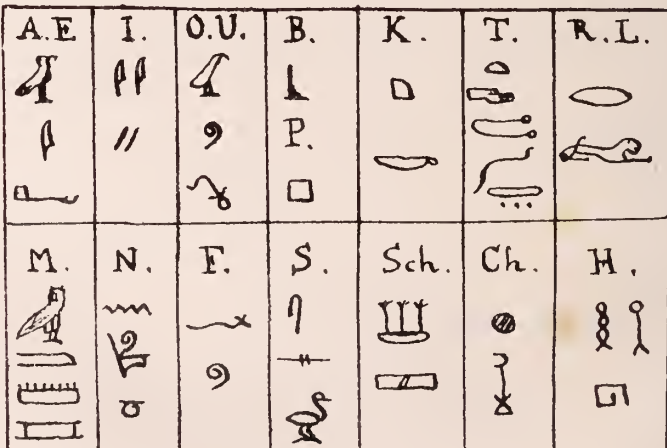 A.E I. O.U. B. K. T. R.L.
P.
M. N. F. S. Sch. Ch. H.